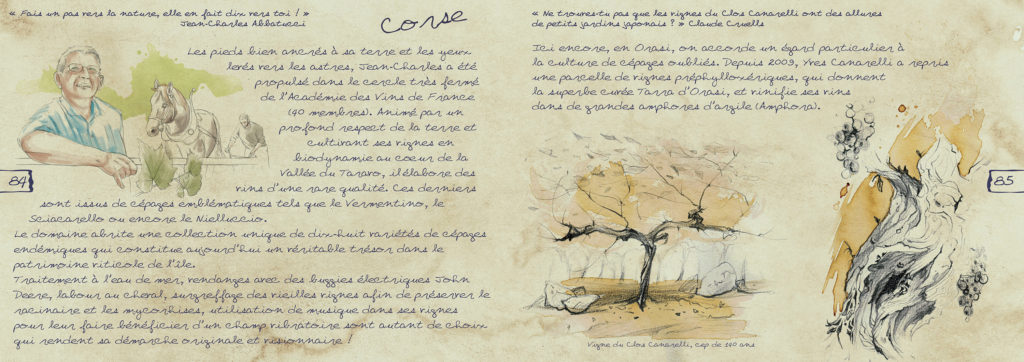 « Fais un pas vers la nature, elle en fait dix vers toi ! »
Jean-Charles Abbatucci
Corse
Les pieds bien ancrés à sa terre et les yeux
levés vers les astres, Jean-Charles a été
propulsé dans le cercle très fermé
de l'Académie des Vins de France
(40 membres). Animé par un
profond respect de la terre et
cultivant ses vignes en
biodynamie au coeur de la
Vallée du Taravo, il élabore des
vins d'une rare qualité. Ces derniers
sont issus de cépages emblématiques tels que le Vermentino, le
Sciacarello ou encore le Nielluccio.
Le domaine abrite une collection unique de dix-huit variétés de cépages
endémiques qui constitue aujourd'hui un véritable trésor dans le
patrimoine viticole de l'île.
Traitement à l'eau de mer, vendanges avec des buggies électriques John
Deere, labour au cheval, surgreffage des vieilles vignes afin de préserver le
racinaire et les mycorhises, utilisation de musique dans ses vignes
pour leur faire bénéficier d'un champ vibratoire sont autant de choix
qui rendent sa démarche originale et visionnaire !
84
« Ne trouves-tu pas que les vignes du Clos Canarelli ont des allures
de petits jardins japonais ? » Claude Cruells
Ici encore, en Orasi, on accorde un égard particulier à
la culture de cépages oubliés. Depuis 2009, Yves Canarelli a repris
une parcelle de vignes préphylloxériques, qui donnent
la superbe cuvée Tarra d'Orasi, et vinifie ses vins
dans de grandes amphores d'argile (Amphora).
85
Vigne du Clos Canarelli, cep de 140 ans